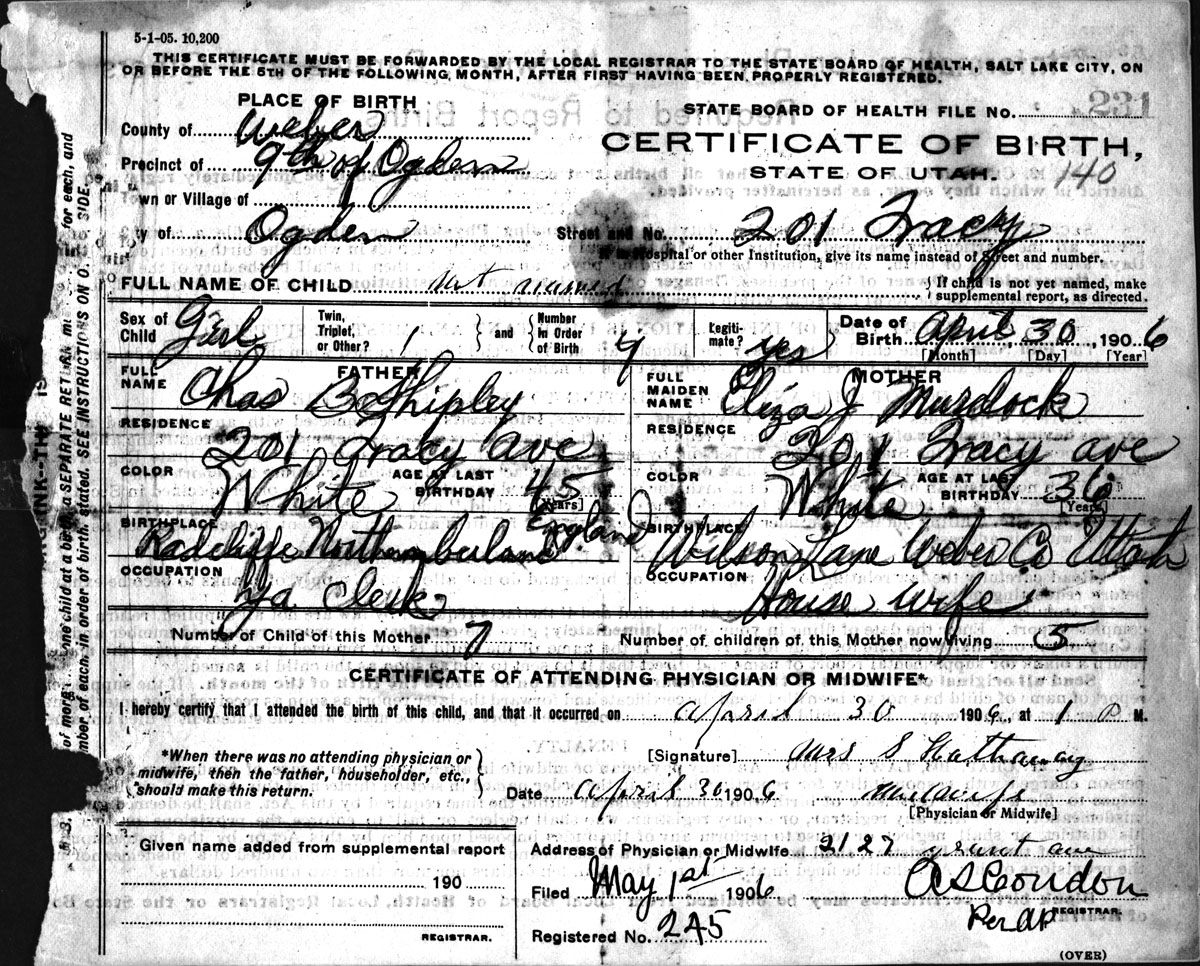 5-1-05. 10,200
THIS CERTIFICATE MUST BE FORWARDED BY THE LOCAL REGISTRAR TO THE STATE BOARD OF HEALTH, SALT LAKE CITY, ON
OR BEFORE THE 5TH OF THE FOLLOWING MONTH, AFTER FIRST HAVING BEEN PROPERLY REGISTERED.
PLACE OF BIRTH
STATE BOARD OF HEALTH FILE No. 221
County of Weber
CERTIFICATE OF BIRTH,
Precinct of 9th of Ogden
STATE OF UTAH. 140
Town or Village of
City of Ogden Street and No. 201 Tracy
If in Hospital or other Institution, give its name instead of Street and number.
FULL NAME OF CHILD not named { If child is not yet named, make supplemental report, as directed.
Sex of Child Girl Twin, Triplet, or Other? 1 } and { Number in Order of Birth Legitimate? yes Date of Birth April 30, 1906
[Month] [Day] [Year]
FATHER MOTHER
FULL NAME Chas B Shipley FULL MAIDEN NAME Eliza J Murdock
RESIDENCE 201 Tracy ave RESIDENCE 201 Tracy ave
COLOR White AGE AT LAST BIRTHDAY 45 [Years] COLOR White AGE AT LAST BIRTHDAY 36 [Years]
BIRTHPLACE Radcliffe Northumberland England BIRTHPLACE Wilson Lane Weber Co Utah
OCCUPATION Clerk OCCUPATION House wife
Number of Child of this Mother 7 Number of children of this Mother now living 5
CERTIFICATE OF ATTENDING PHYSICIAN OR MIDWIFE*
I hereby certify that I attended the birth of this child, and that it occurred on April 30 1906, at 1 P M.
*When there was no attending physician or
midwife, then the father, householder, etc.,
should make this return.
[Signature] Mrs S Hathaway
Date April 30 1906
[Physician or Midwife]
Given name added from supplemental report
190
REGISTRAR.
Address of Physician or Midwife 2127 grant ave
Filed May 1st 1906 A S Condon
REGISTRAR.
Per AP
Registered No. 245
(OVER)
one child at a birth, a SEPARATE RETURN for each, and
number of each, in order of birth, stated. SEE INSTRUCTIONS ON SIDE.